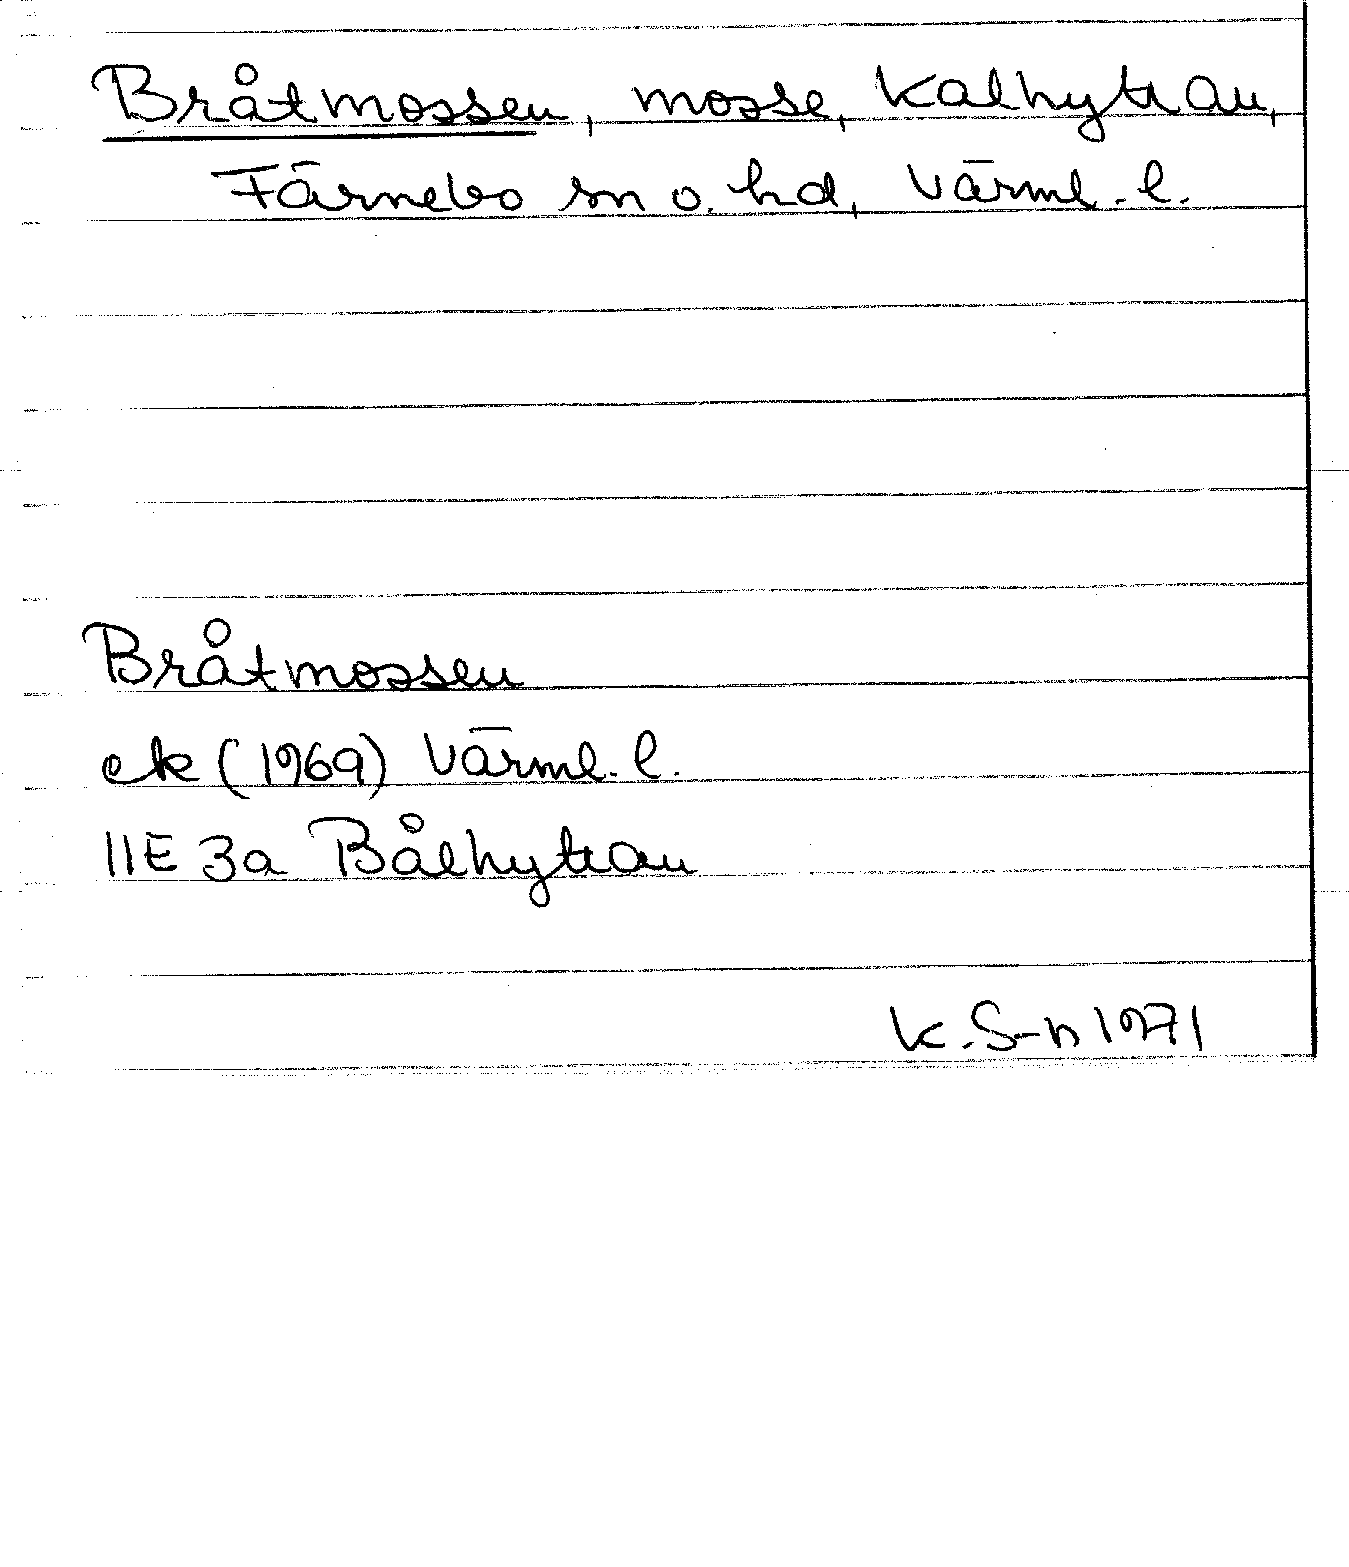 Bråtmossen, mosse, Kalhyttan,
Färnebo sn o. hd, Värml. l.
Bråtmossen
ek (1969) Värml. l.
11E 3a Bålhyttan
K. S-n 1971